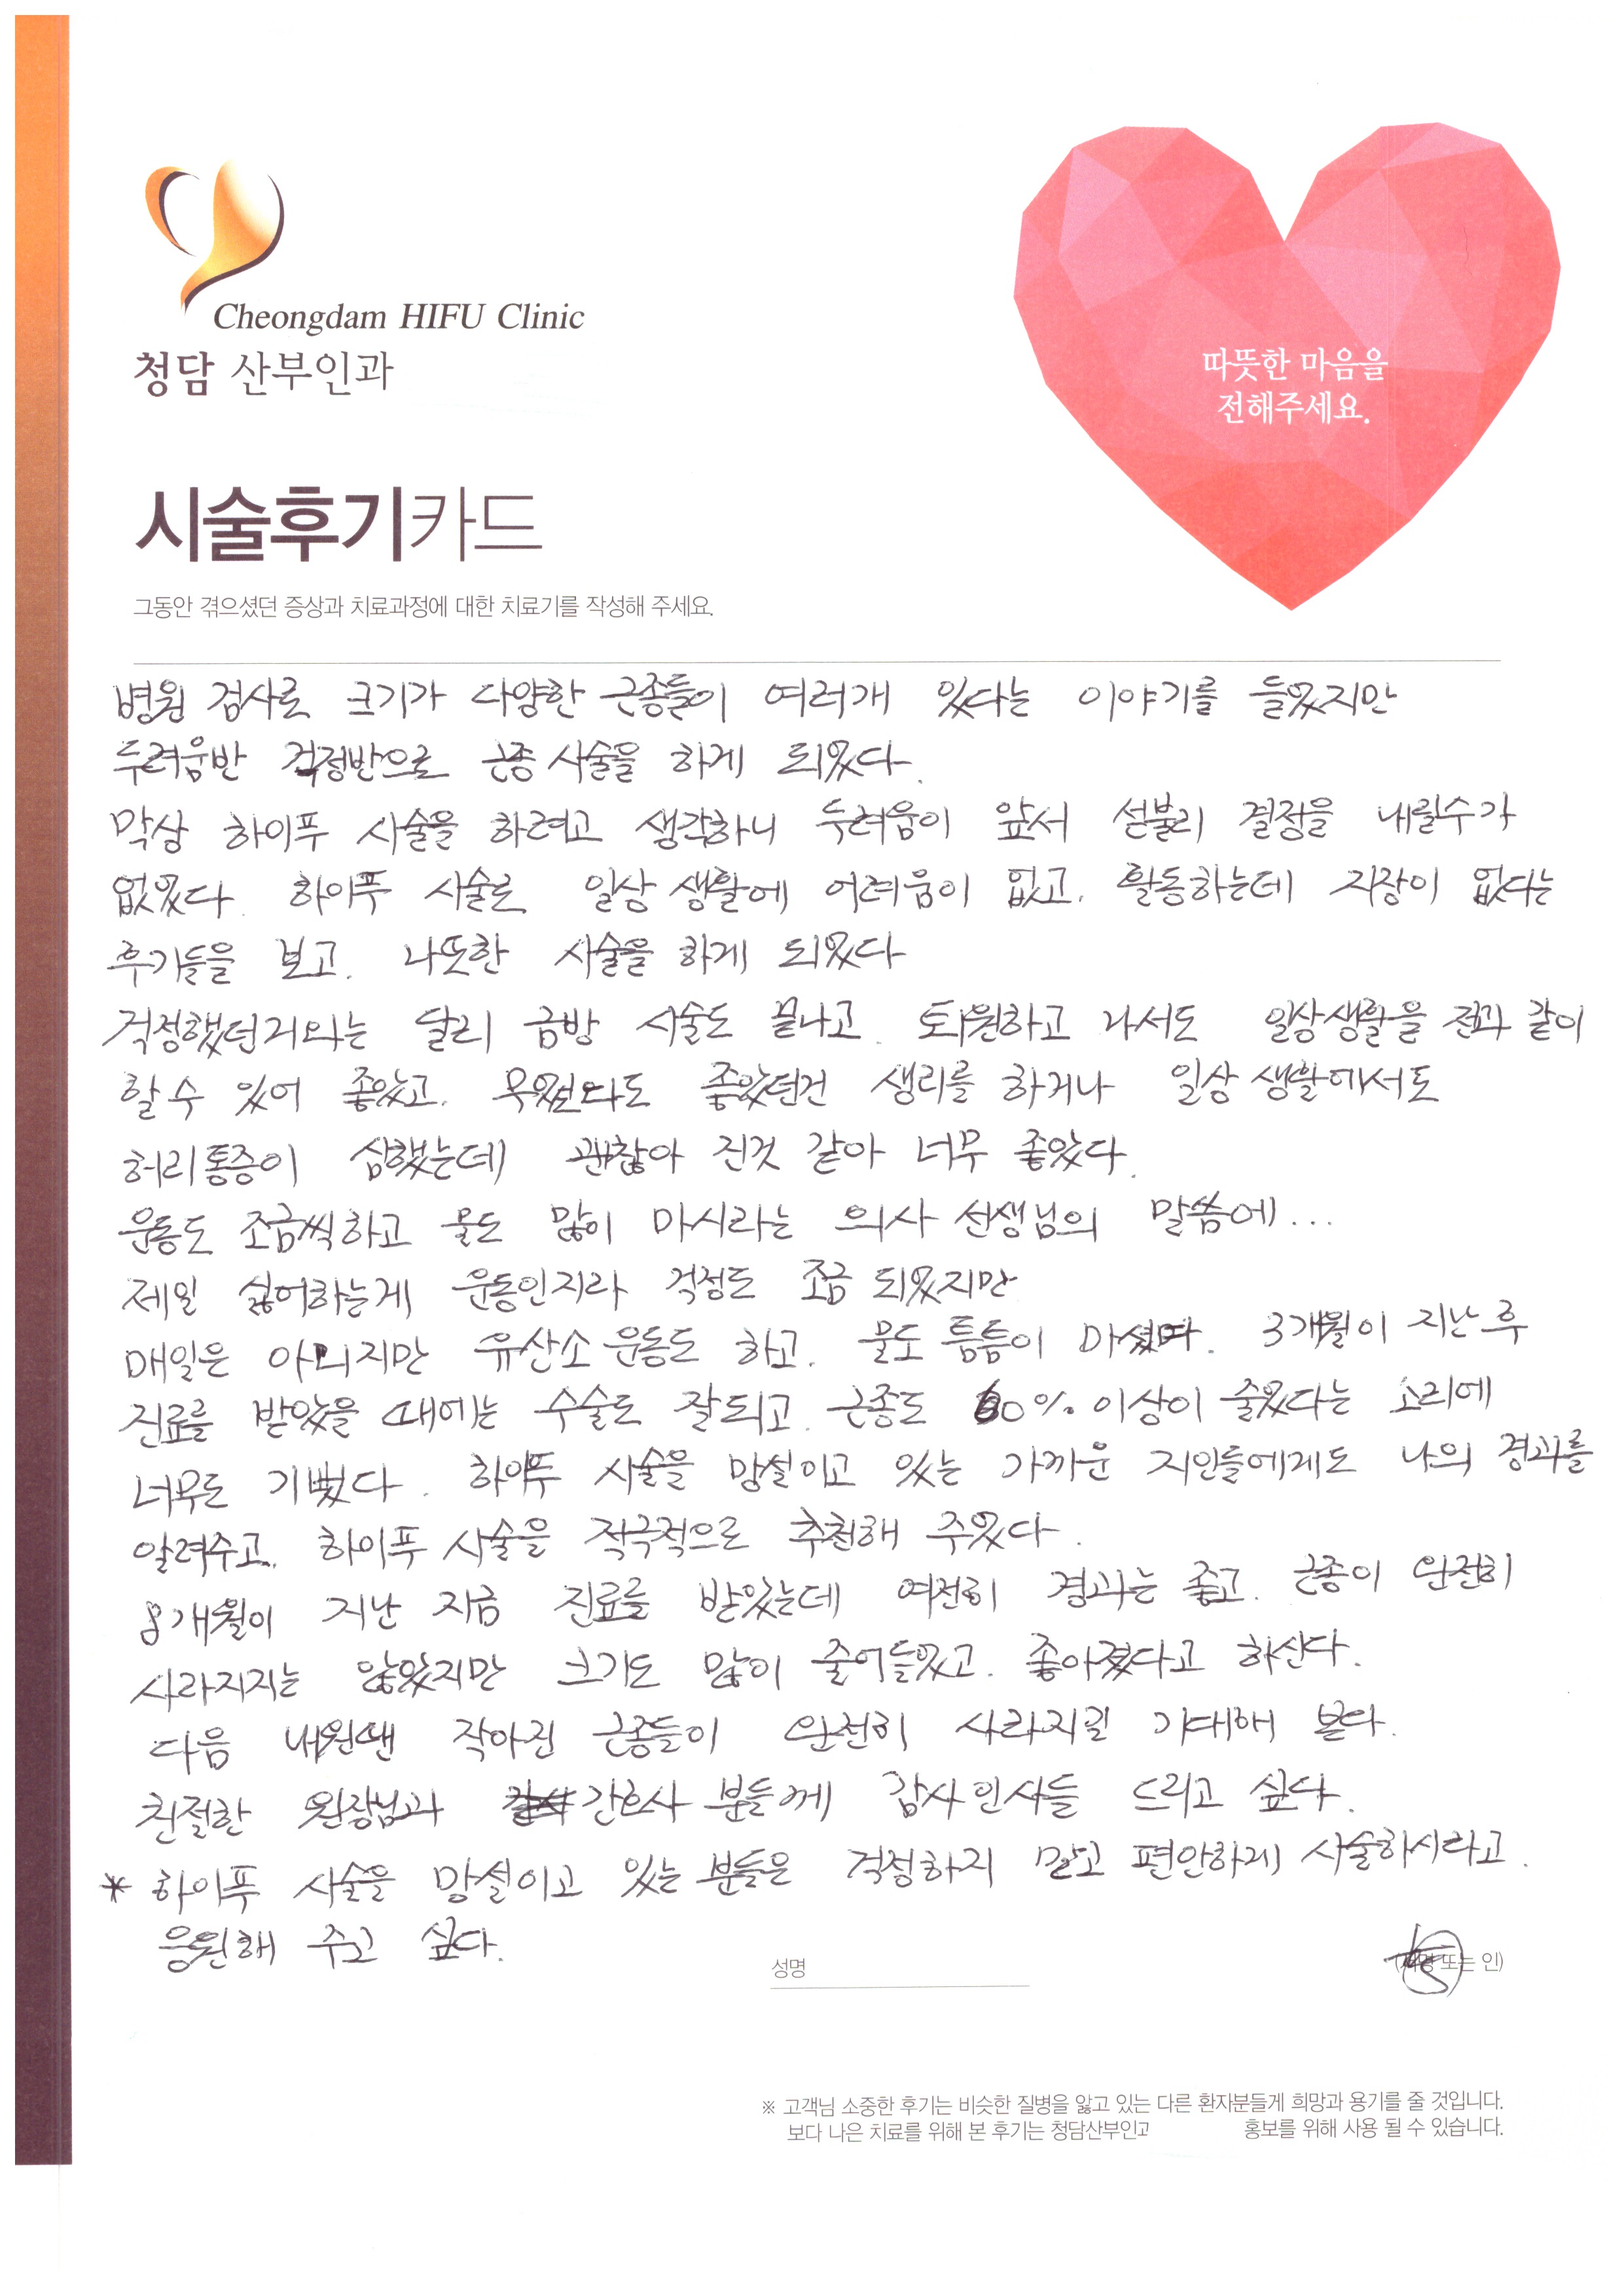 Cheongdam HIFU Clinic
청담 산부인과
따뜻한 마음을
전해주세요.
시술후기카드
그동안 겪으셨던 증상과 치료과정에 대한 치료기를 작성해 주세요.
병원 검사로 크기가 다양한 근종들이 여러개 있다는 이야기를 들었지만
두려움반 걱정반으로 근종 시술을 하게 되었다.
막상 하이푸 시술을 하려고 생각하니 두려움이 앞서 섣불리 결정을 내릴수가
없었다. 하이푸 시술로 일상 생활에 어려움이 없고, 활동하는데 지장이 없다는
후기들을 보고, 나또한 시술을 하게 되었다
걱정했던거와는 달리 금방 시술도 끝나고, 퇴원하고 나서도 일상생활을 전과 같이
할수 있어 좋았고, 무엇보다도 좋았던건 생리를 하거나 일상 생활에서도
허리통증이 심했는데 괜찮아 진것 같아 너무 좋았다.
운동도 조금씩하고 물도 많이 마시라는 의사 선생님의 말씀에...
제일 싫어하는게 운동인지라 걱정도 조금 되었지만
매일은 아니지만 유산소 운동도 하고, 물도 틈틈이 마셨다. 3개월이 지난 후
진료를 받았을 때에는 수술도 잘되고, 근종도 60% 이상이 줄었다는 소리에
너무도 기뻤다. 하이푸 시술을 망설이고 있는 가까운 지인들에게도 나의 경과를
알려주고, 하이푸 시술을 적극적으로 추천해 주었다.
8개월이 지난 지금 진료를 받았는데 여전히 경과는 좋고, 근종이 완전히
사라지지는 않았지만 크기도 많이 줄어들었고, 좋아졌다고 하신다.
다음 내원땐 작아진 근종들이 완전히 사라지길 기대해 본다.
친절한 원장님과 간호사 분들께 감사인사를 드리고 싶다.
* 하이푸 시술을 망설이고 있는 분들은 걱정하지 말고 편안하게 시술하시라고
응원해 주고 싶다.
성명
(서명 또는 인)
※ 고객님 소중한 후기는 비슷한 질병을 앓고 있는 다른 환자분들게 희망과 용기를 줄 것입니다.
보다 나은 치료를 위해 본 후기는 청담산부인고 홍보를 위해 사용 될 수 있습니다.